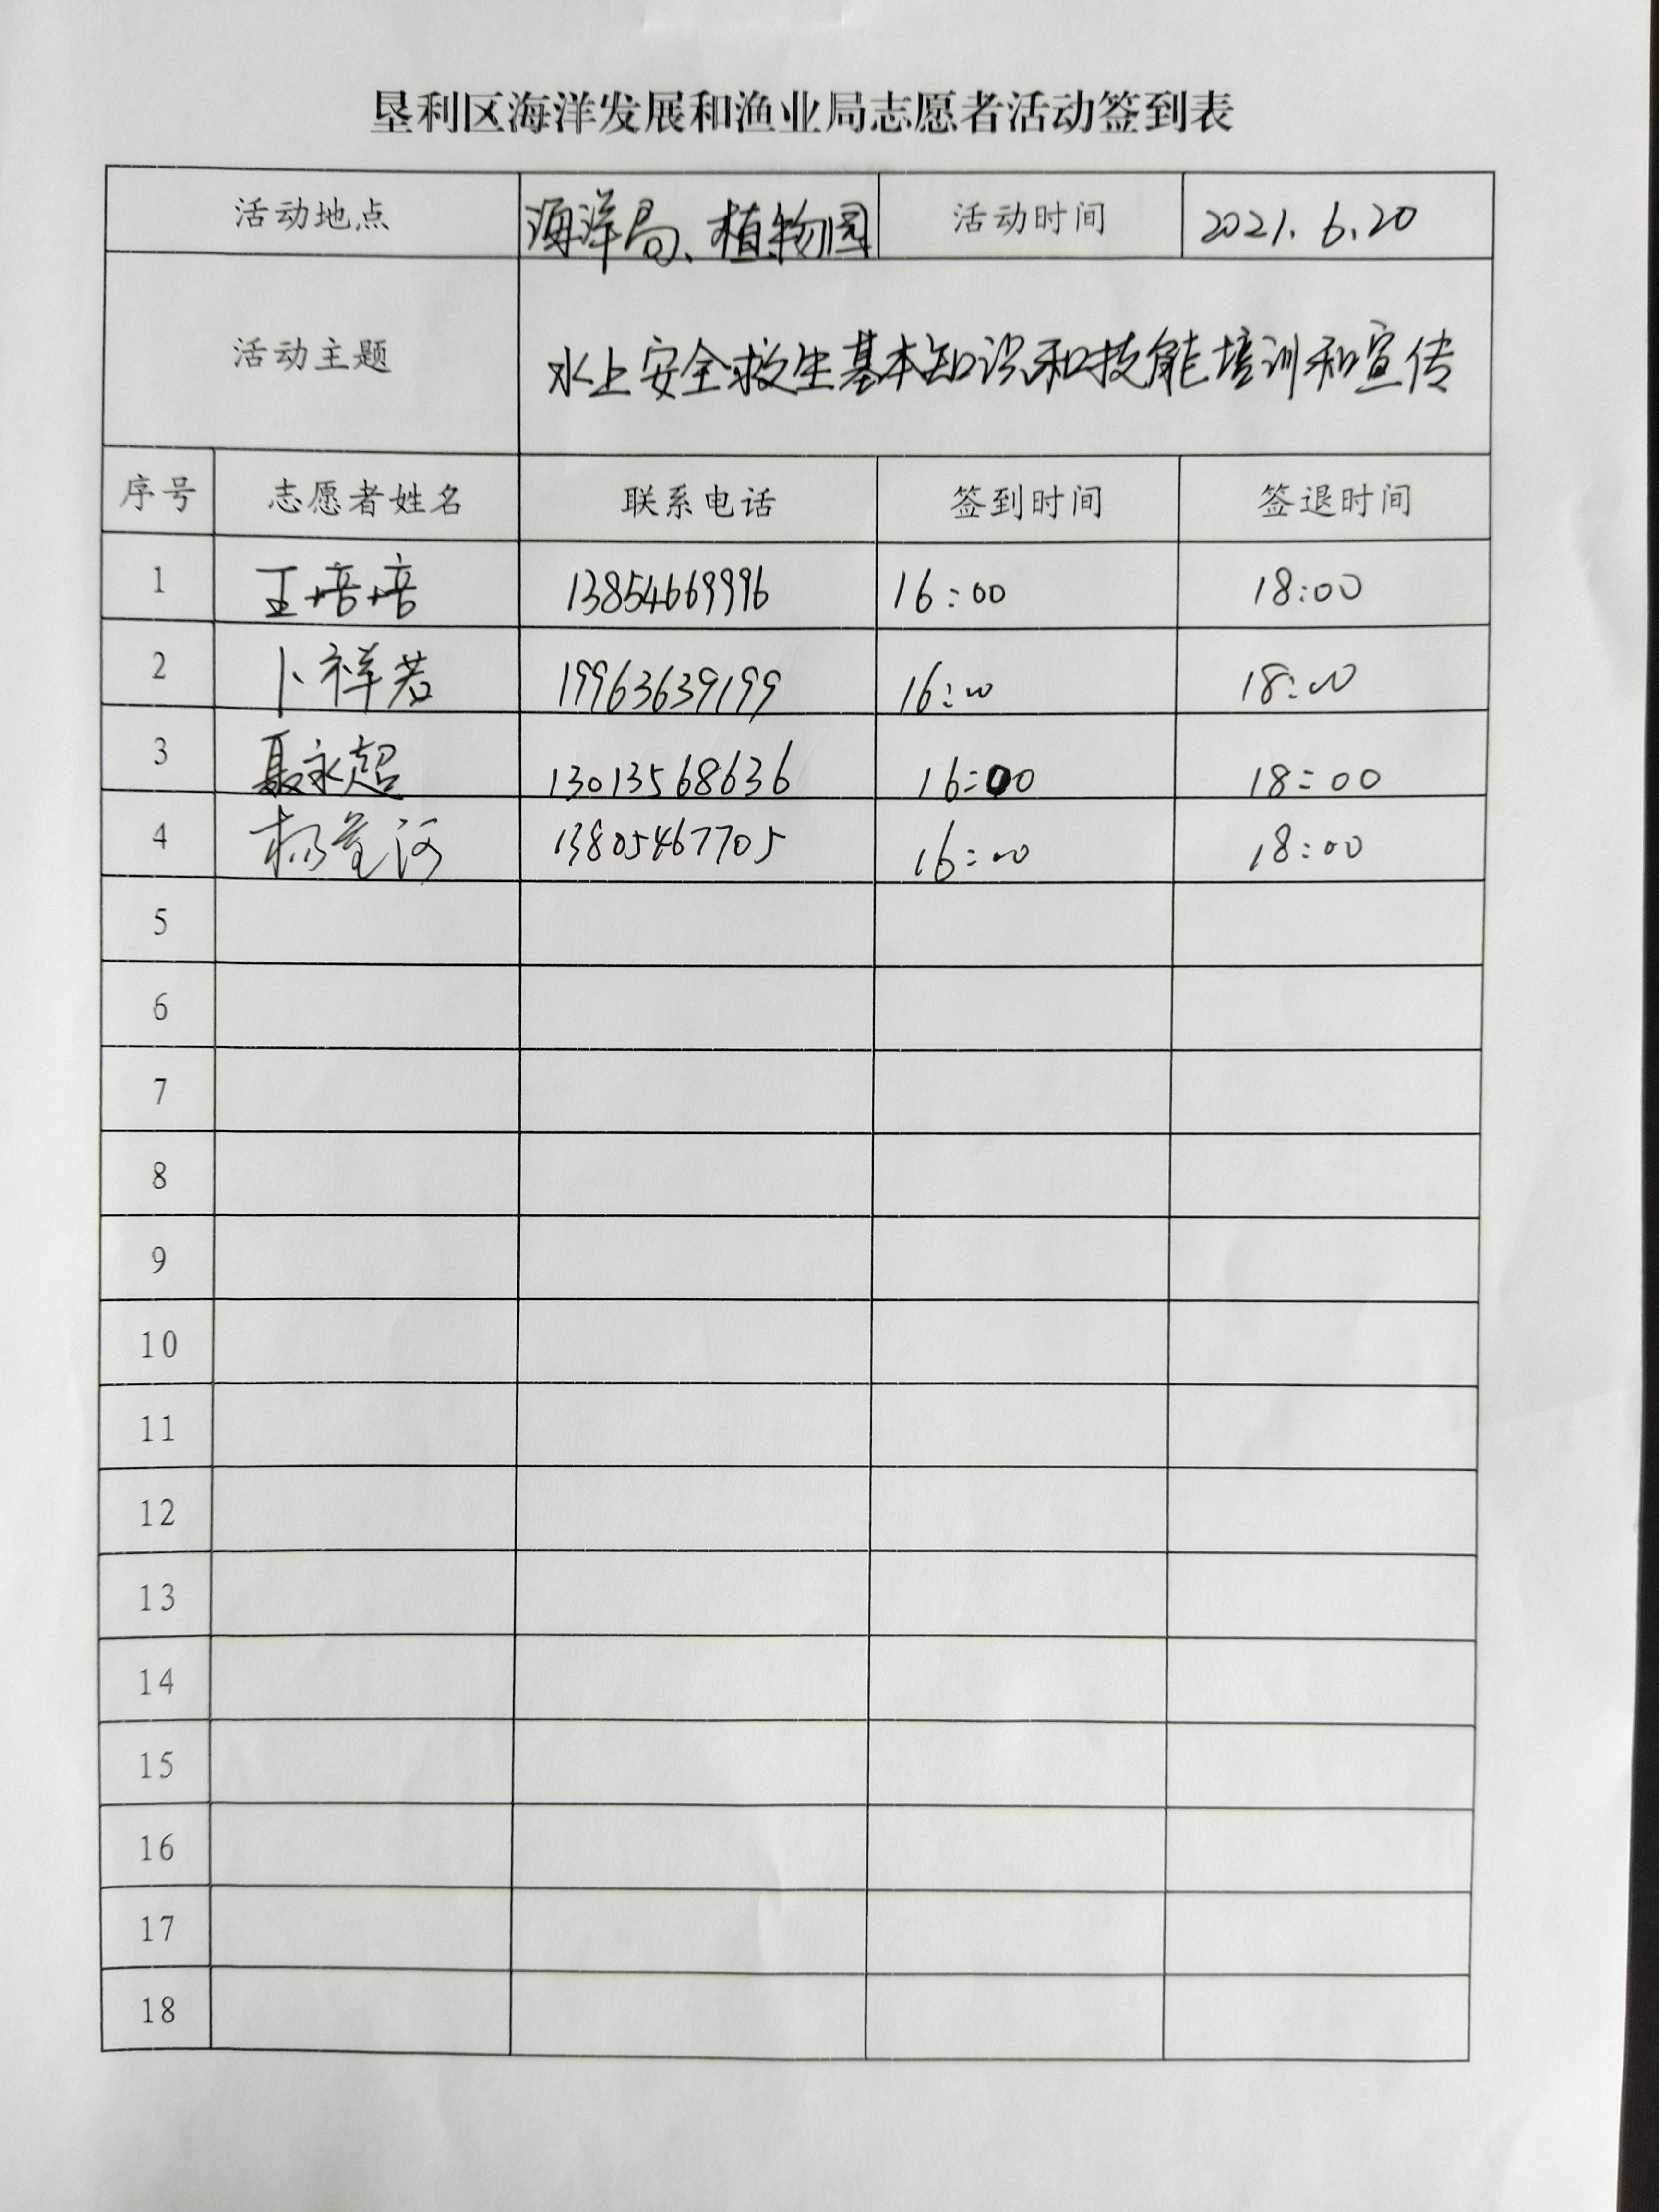 垦利区海洋发展和渔业局志愿者活动签到表
活动地点 海洋局、植物园 活动时间 2021.6.20
活动主题 水上安全救生基本知识和技能培训和宣传
序号 志愿者姓名 联系电话 签到时间 签退时间
1 王培培 13854669996 16:00 18:00
2 卜祥若 19963639199 16:00 18:00
3 聂永超 13013568636 16:00 18:00
4 杨 河 13805467705 16:00 18:00
5
6
7
8
9
10
11
12
13
14
15
16
17
18